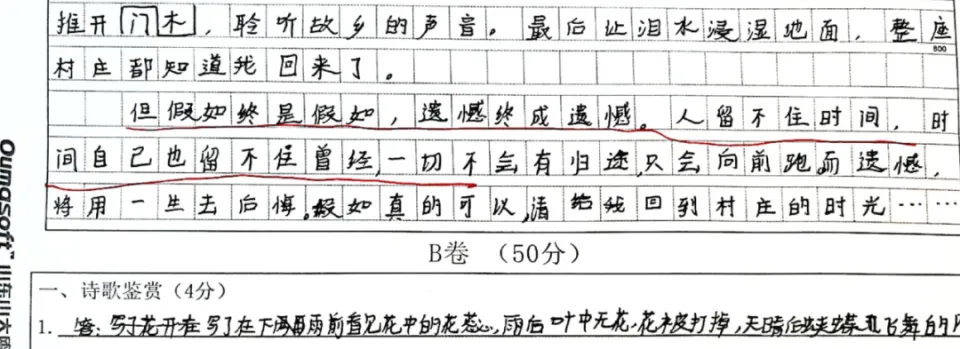 推开门木，聆听故乡的声音。最后让泪水浸湿地面，整座
800
村庄都知道我回来了。
但假如终是假如，遗憾终成遗憾。人留不住时间，时
间自己也留不住曾经，一切不会有归途，只会向前跑，而遗憾，
将用一生去后悔。假如真的可以，请给我回到村庄的时光……
B卷 （50分）
一、诗歌鉴赏（4分）
1. 答：写了花开在 写了在下 雨前看见花中的花蕊，雨后叶中无花，花被打掉，天晴后 飞舞的
Oumasoft™ 山东山大鸥